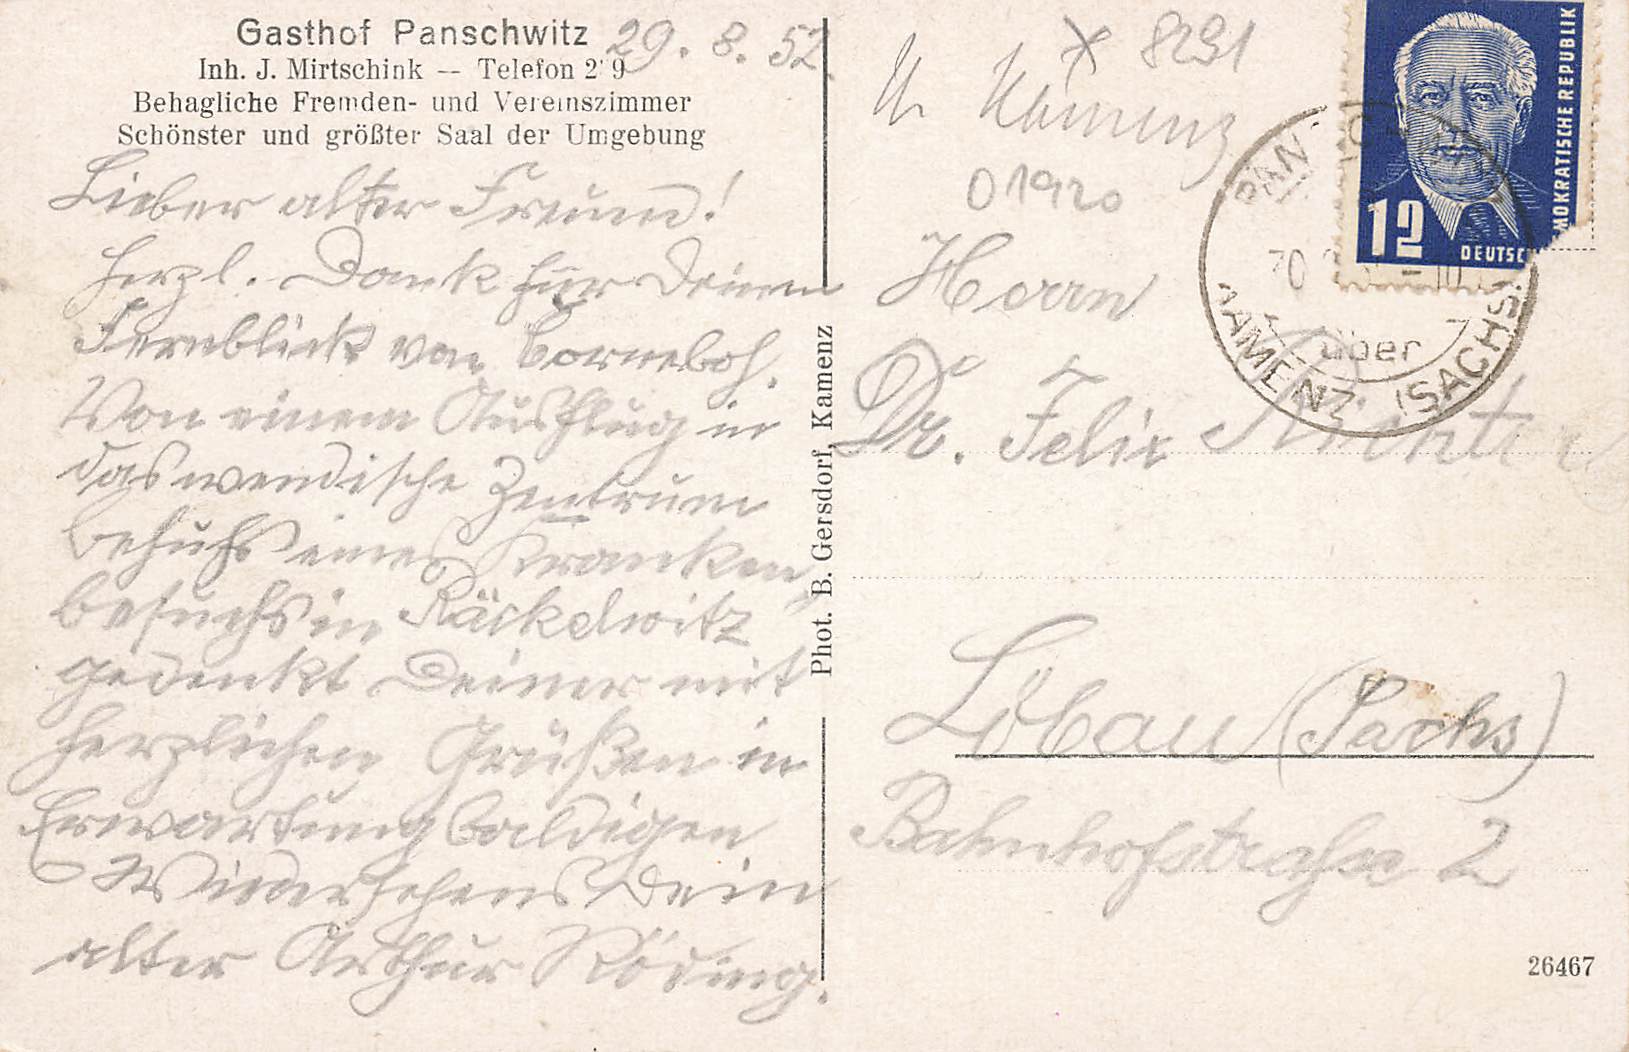 Gasthof Panschwitz
29. 8. 52.
Inh. J. Mirtschink — Telefon 2 9
Behagliche Fremden- und Vereinszimmer
Schönster und größter Saal der Umgebung
Lieber alter Freund!
Herzl. Dank für Deinen
Fernblick von Czorneboh.
Von einem Ausflug in
das wendische Zentrum
behufs eines Kranken
besuchs in Räckelwitz
gedenkt Deiner mit
herzlichen Grüßen in
Erwartung baldigen
Wiedersehens Dein
alter Arthur Röding.
Phot. B. Gersdorf, Kamenz
* 8291
Kr Kamenz
01920
MOKRATISCHE REPUBLIK
12
DEUTSC
PANSCHWITZ
über
KAMENZ (SACHS)
Herrn
Dr. Felix Richter
Löbau (Sachs)
Bahnhofstraße 2
26467